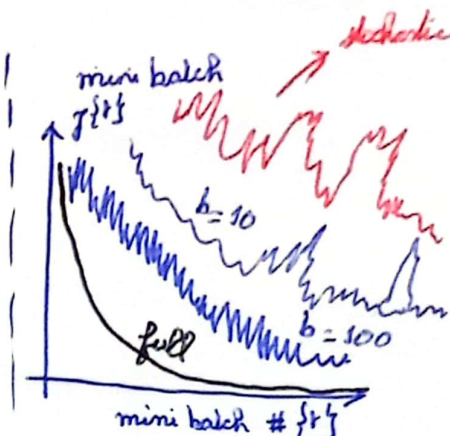 stochastic
mini batch
J{t}
b=10
b=100
full
mini batch # {t}